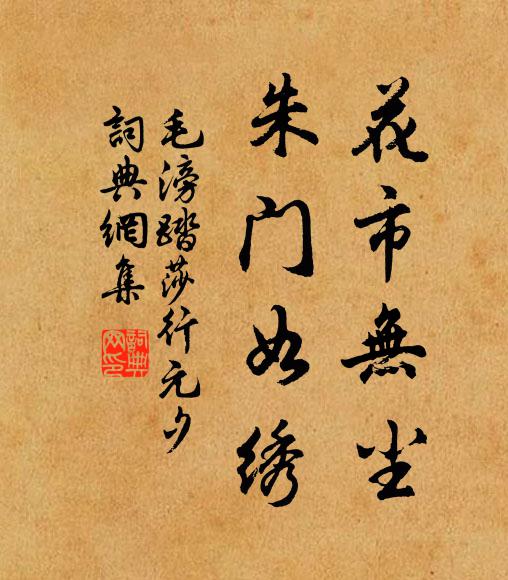 花市無尘
朱门如绣
毛滂踏莎行元夕
詞典網集
詞典
网印